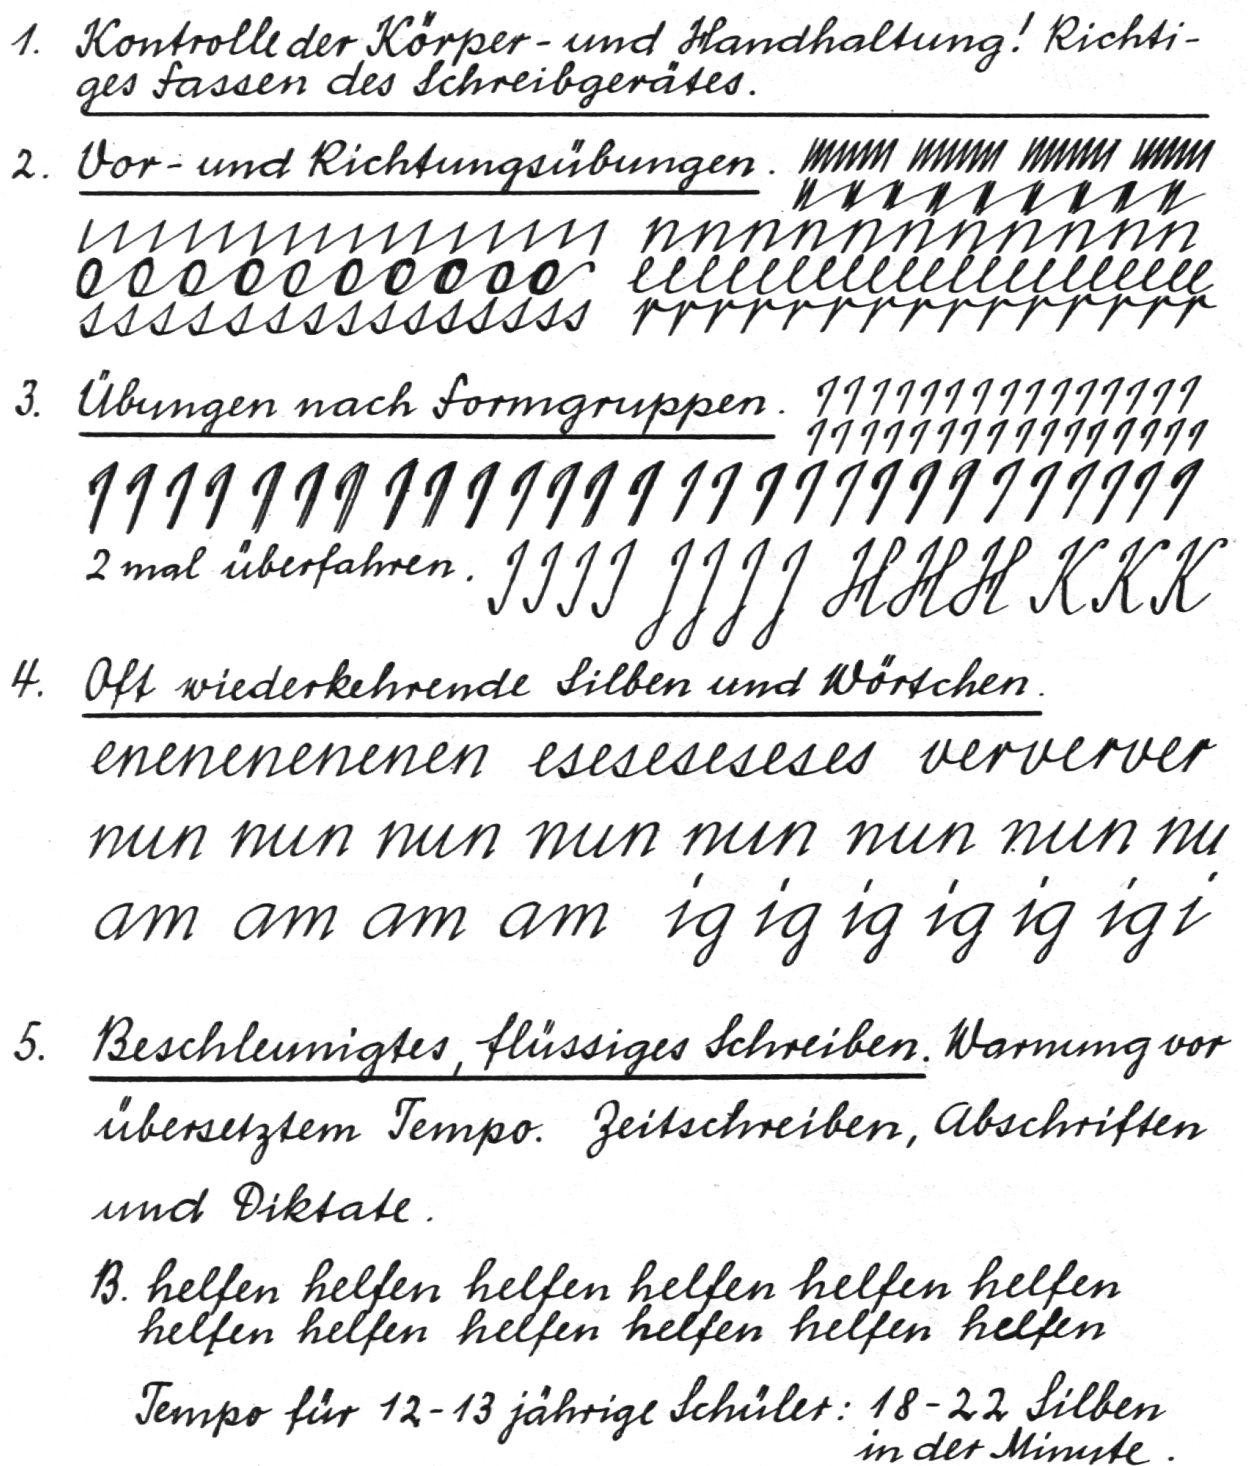 1. Kontrolle der Körper- und Handhaltung! Richti-
ges Fassen des Schreibgerätes.
2. Vor- und Richtungsübungen.
3. Übungen nach Formgruppen.
2 mal überfahren. JJJJ JJJJ HHH KKK
4. Oft wiederkehrende Silben und Wörtchen.
enenenenenen esesesesesese verververver
nun nun nun nun nun nun nun nu
am am am am ig ig ig ig ig igi
5. Beschleunigtes, flüssiges Schreiben. Warnung vor
übersetztem Tempo. Zeitschreiben, Abschriften
und Diktate.
B. helfen helfen helfen helfen helfen helfen
helfen helfen helfen helfen helfen helfen
Tempo für 12-13 jährige Schüler: 18-22 Silben
in der Minute.